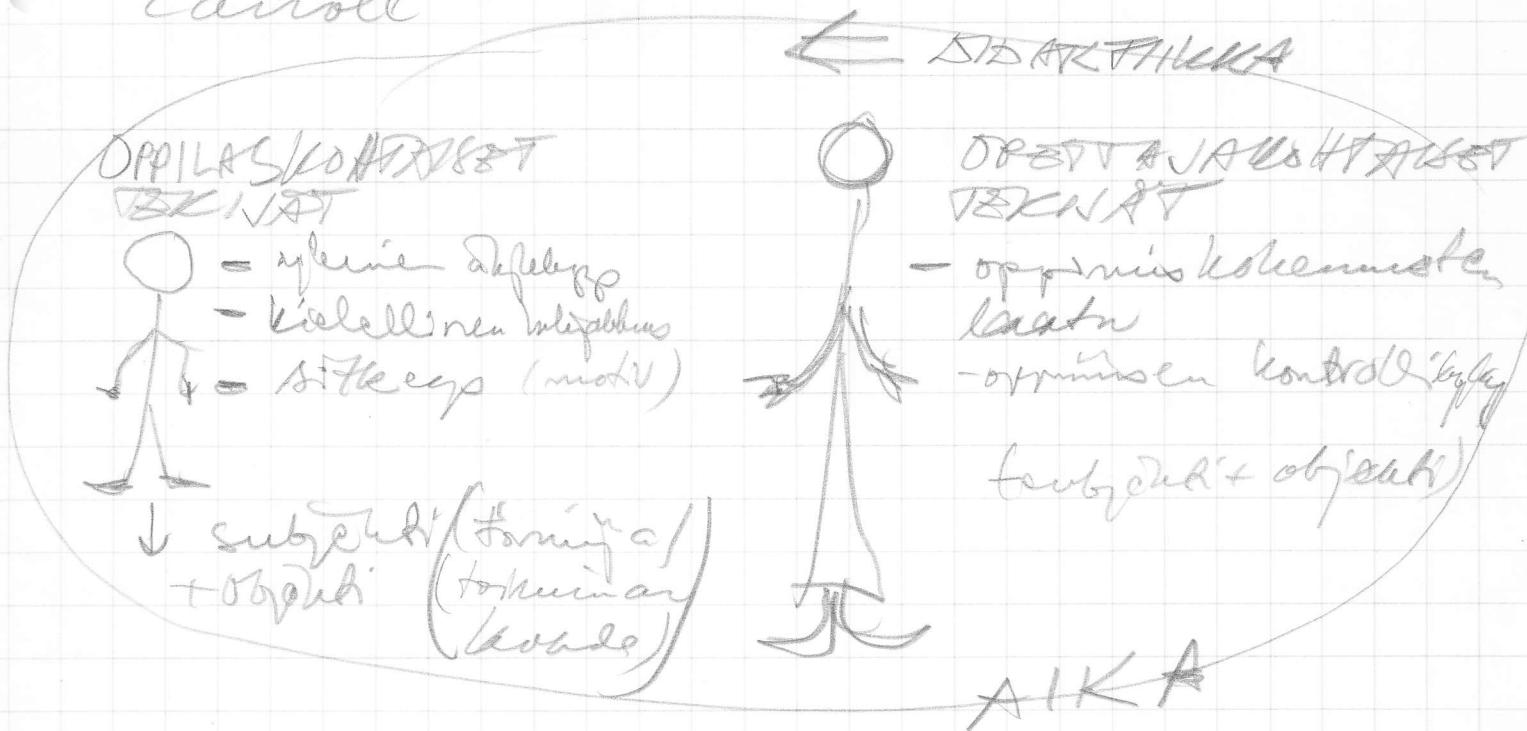 Carroll
← DIDAKTIIKKA
OPPILASKOHTAISET
TEKIJÄT
- yleinen älykkyys
- kielellinen lahjakkuus
- sitkeys (motiv)
↓ subjekti (toimija)
+ objekti (toiminnan
kohde)
OPETTAJAKOHTAISET
TEKIJÄT
- oppimiskokemusten
laatu
- oppimisen kontrollikyky
(subjekti + objekti)
AIKA